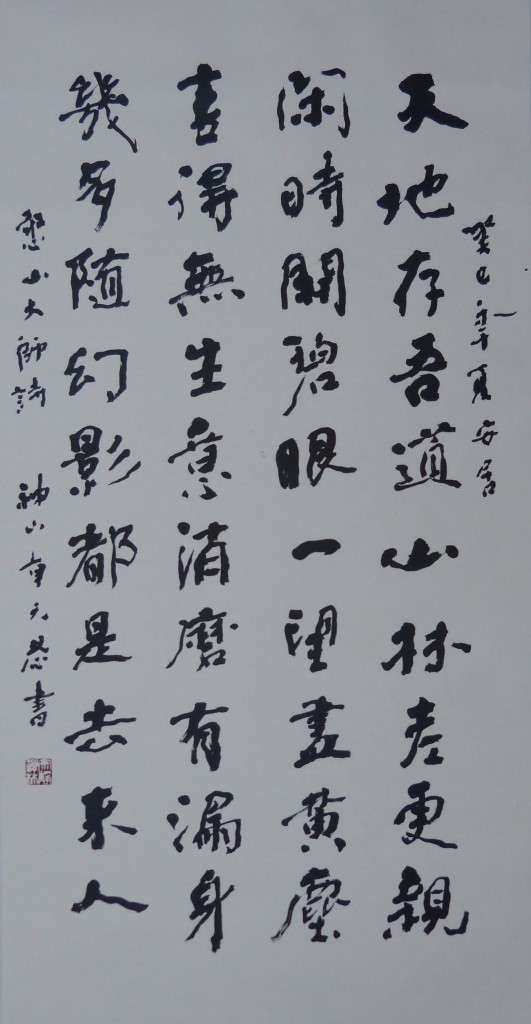 癸巳年夏安居
天地存吾道山林老更親
閑時開碧眼一望盡黃塵
喜得無生意消磨有漏身
幾多随幻影都是去来人
憨山大師詩 神山書